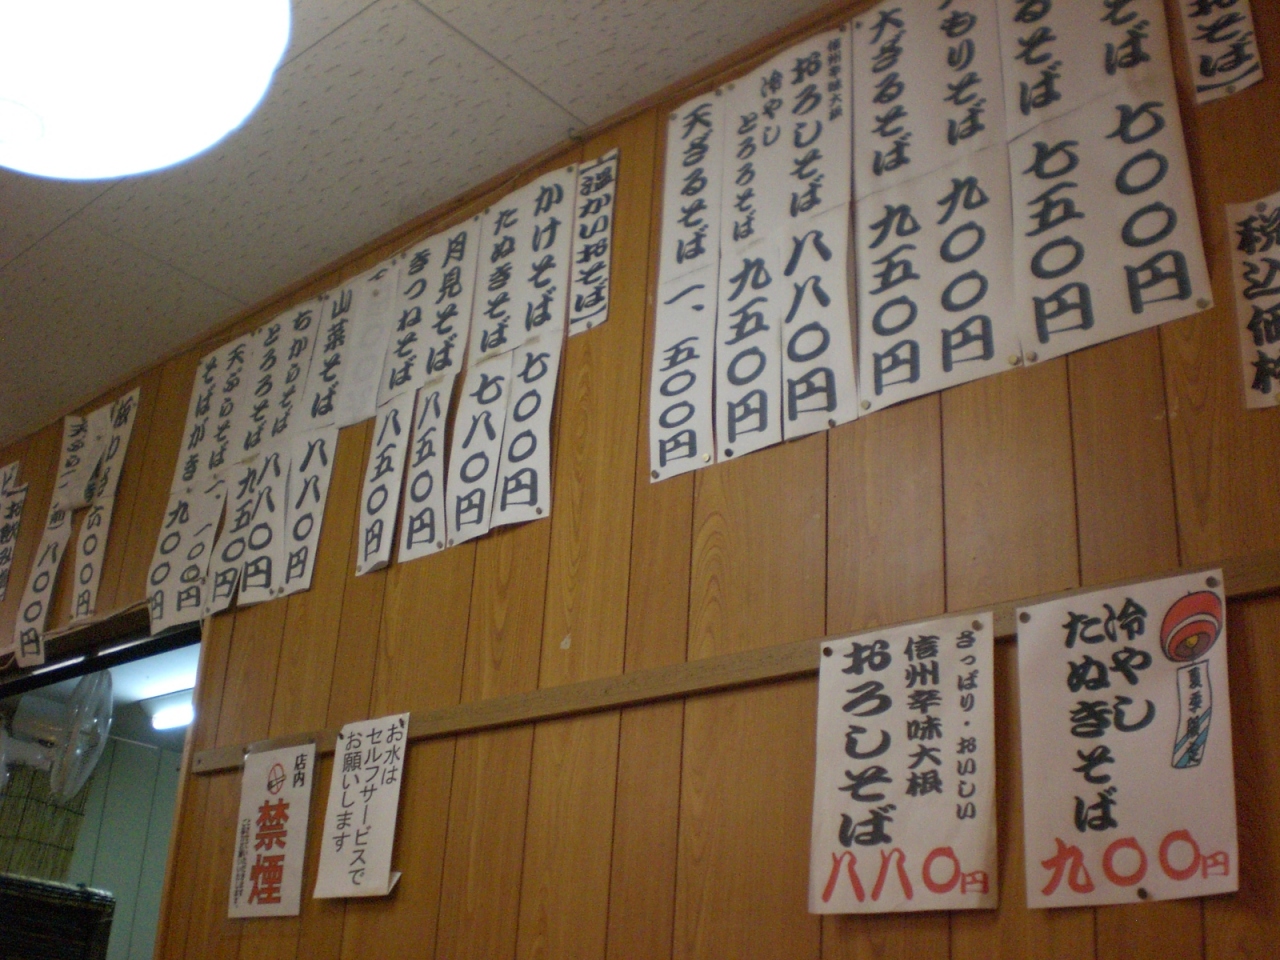 税込価格
おそば)
そば 七〇〇円
るそば 七五〇円
もりそば 九〇〇円
大ざるそば 九五〇円
信州辛味大根
おろしそば 八八〇円
冷やし
とろろそば 九五〇円
天ざるそば 一、五〇〇円
(温かいおそば)
かけそば 七〇〇円
たぬきそば 七八〇円
月見そば 八五〇円
きつねそば 八五〇円
山菜そば 八八〇円
ちからそば 八八〇円
とろろそば 九五〇円
天ぷらそば 一、一〇〇円
そばがき 九〇〇円
六〇〇円
八〇〇円
夏季限定
冷やし
たぬきそば
九〇〇円
さっぱり・おいしい
信州辛味大根
おろしそば
八八〇円
お水は
セルフサービスで
お願いします
店内
禁煙